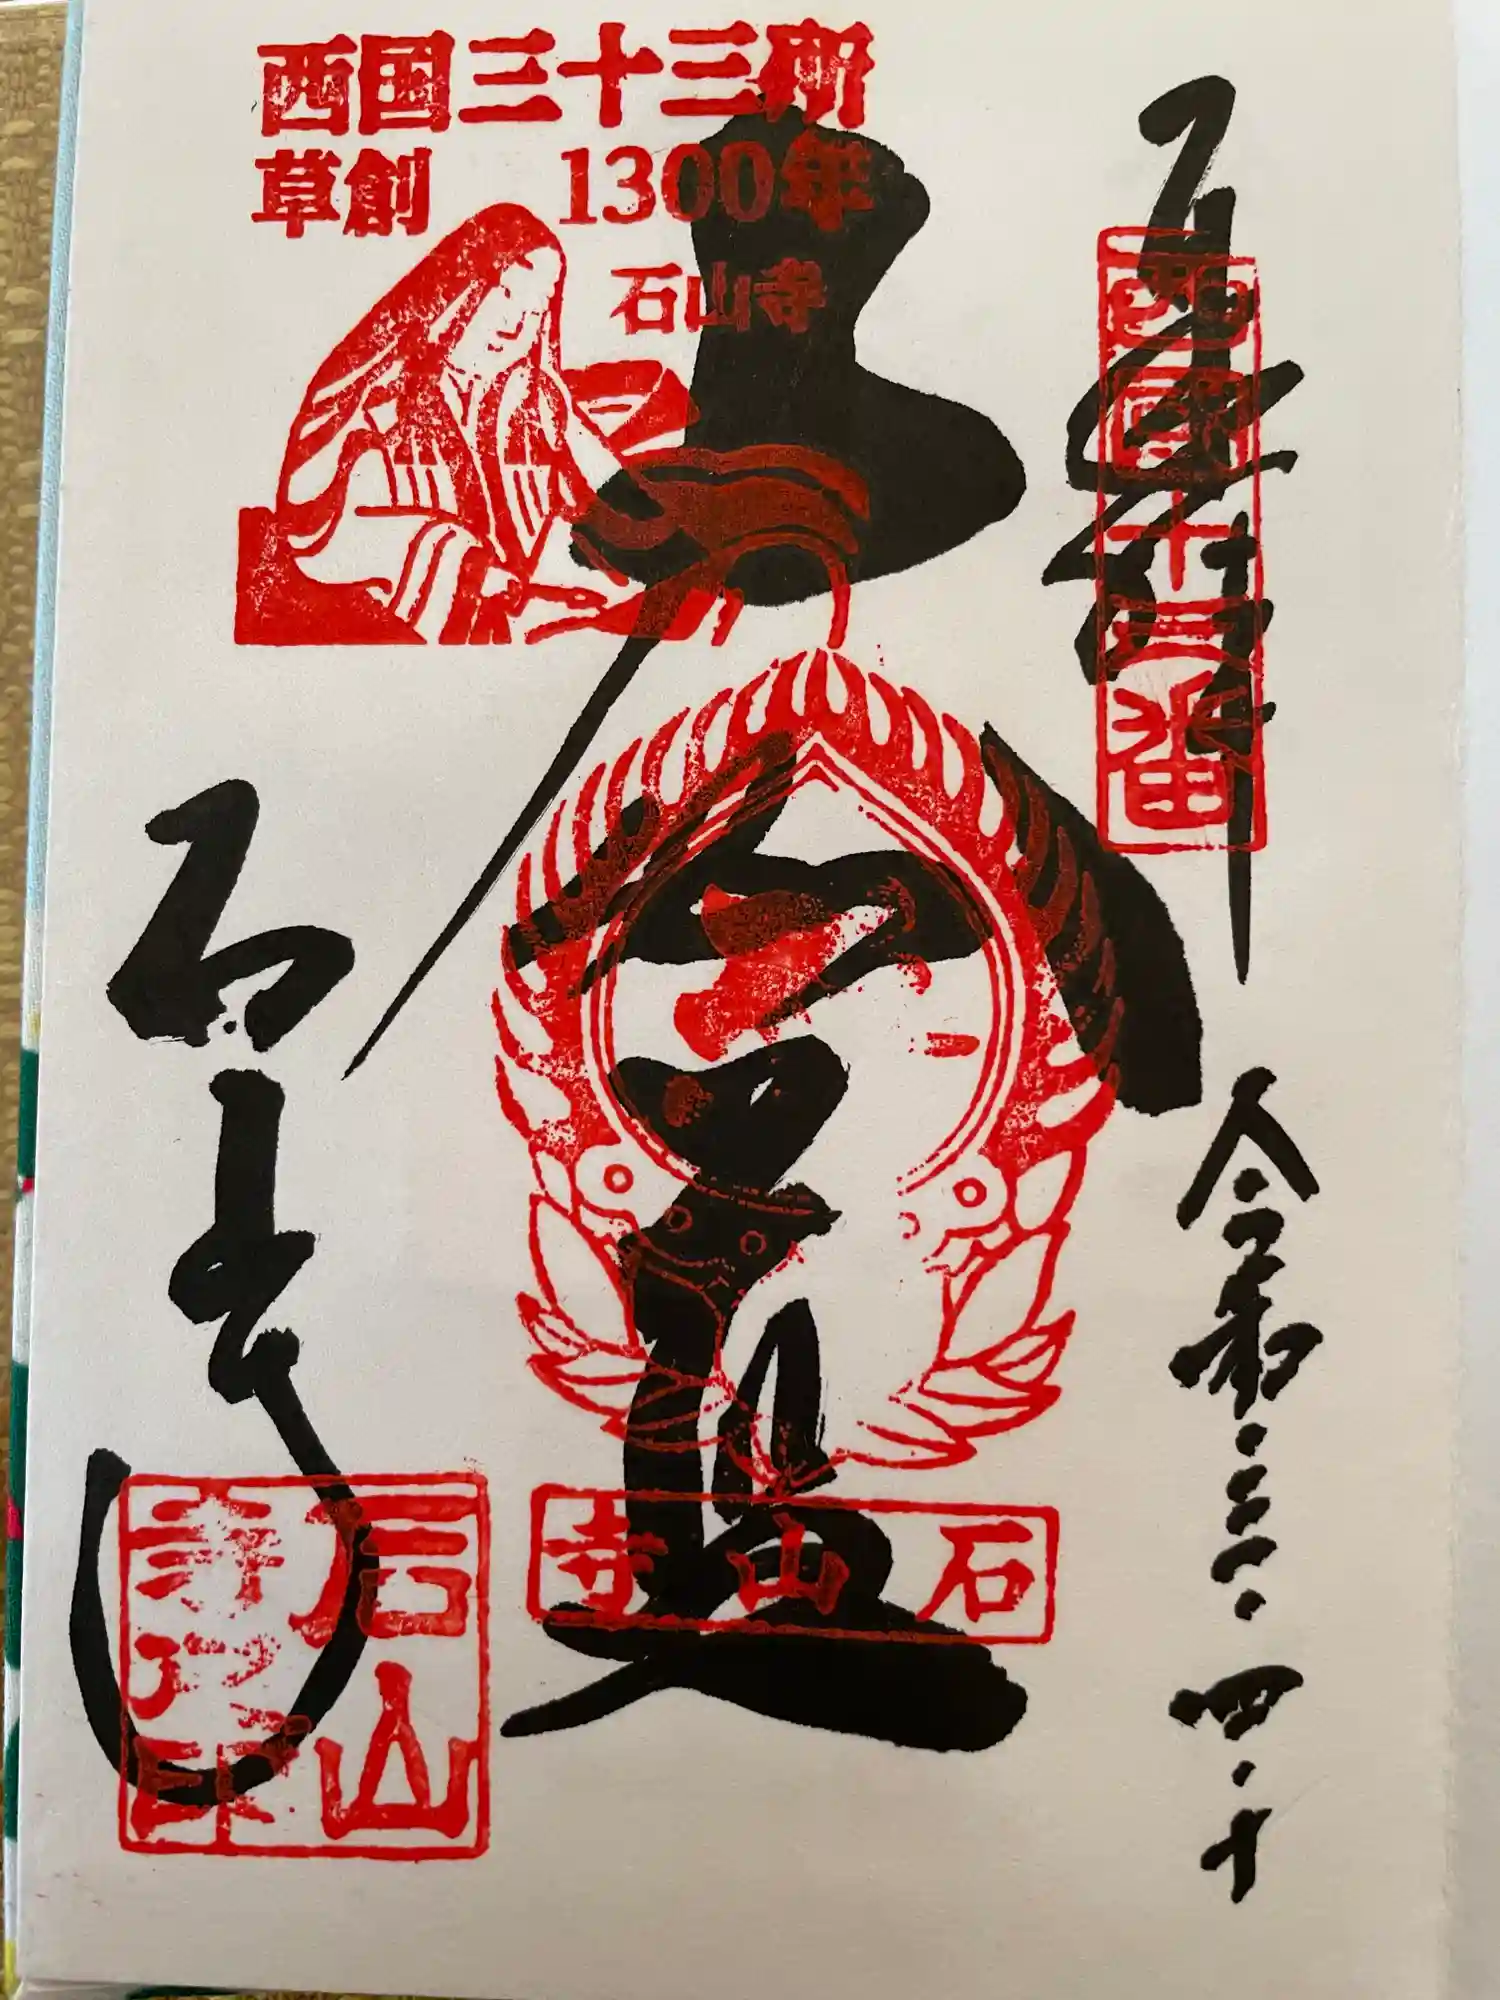 西国三十三所
草創 1300年
石山寺
奉拝
西國十三番
令和三・四・十
石山寺
石山寺
石山
寺
印